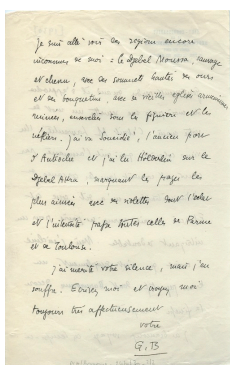 Je suis allé voir des régions encore
inconnues de moi : le djebel Moussa, sauvage
et chenu, avec ses sommets hantés des ours
et des bouquetins, avec ses vieilles églises arméniennes
ruinées, ensevelies sous les figuiers et les
néfliers. J'ai vu Soueidié, l'ancien port
d'Antioche et j'ai lu Hölderlin sur le
Djebel Akra, marquant les pages les
plus aimées avec des violettes dont l'odeur
et l'intensité passe toutes celles de Parme
et de Toulouse.
J'ai mérité votre silence, mais j'en
souffre. Ecrivez moi et croyez moi
toujours très affectueusement
votre
G.B